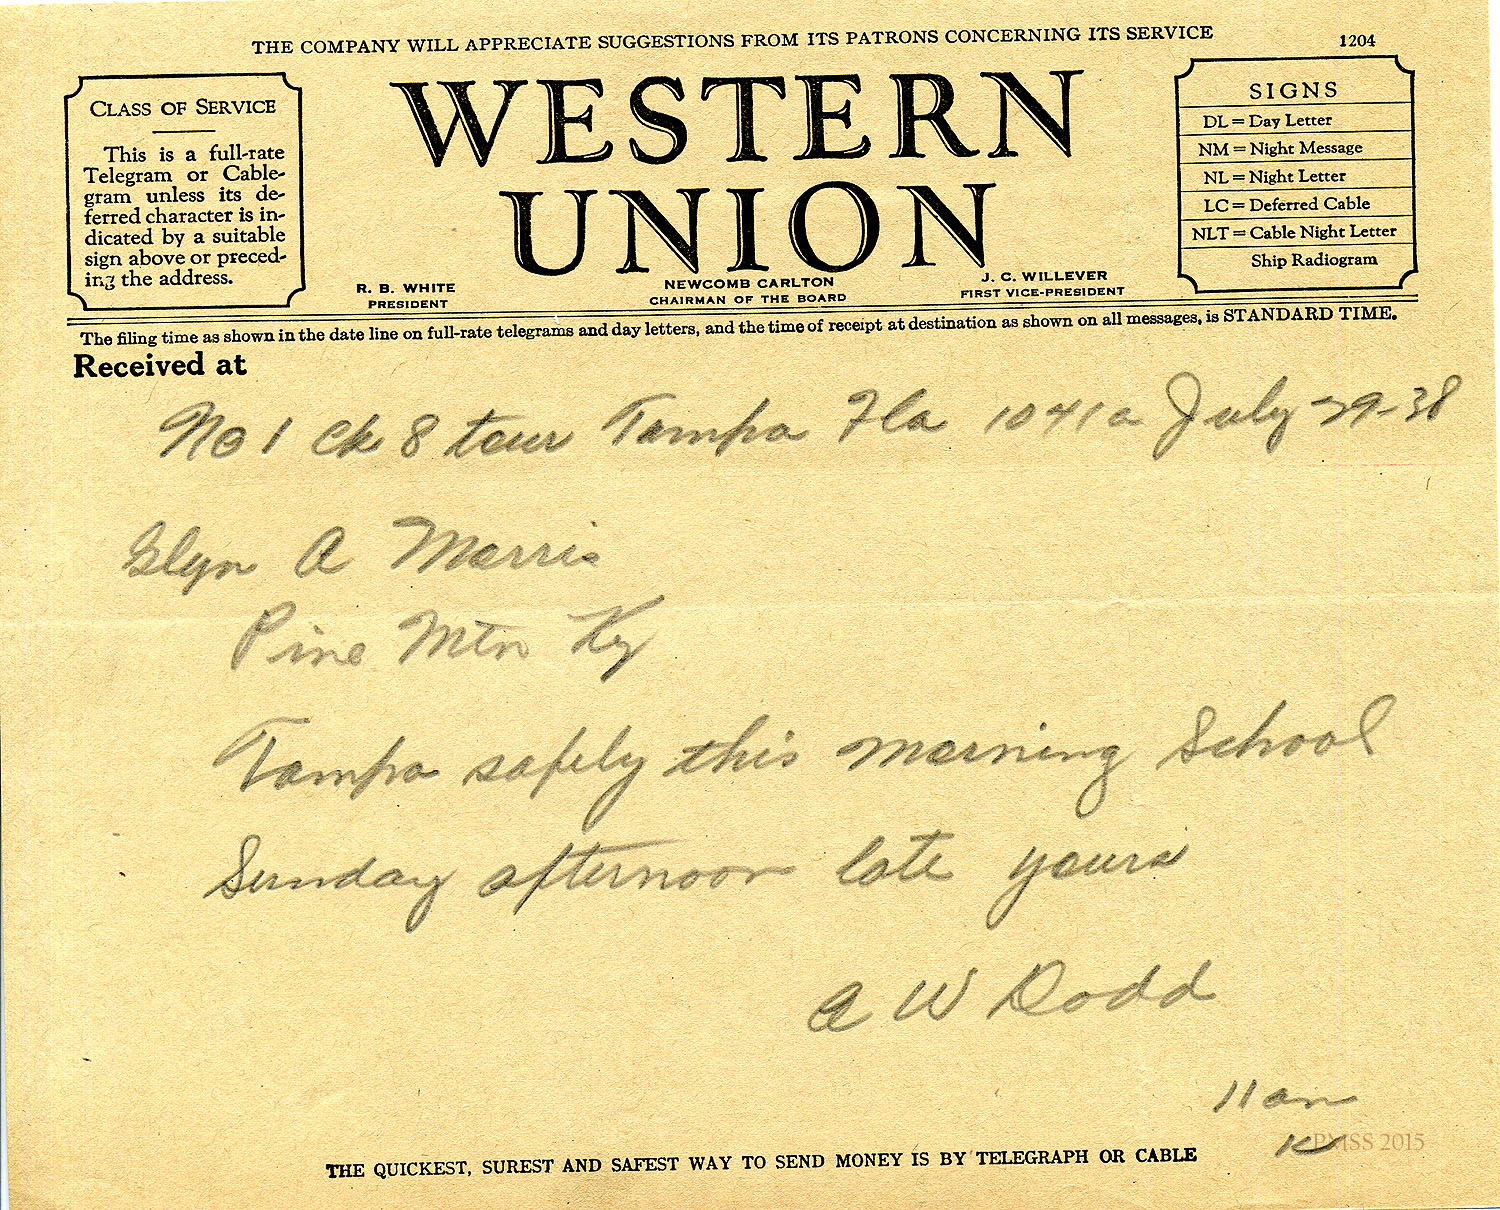 THE COMPANY WILL APPRECIATE SUGGESTIONS FROM ITS PATRONS CONCERNING ITS SERVICE
1204
CLASS OF SERVICE
This is a full-rate
Telegram or Cable-
gram unless its de-
ferred character is in-
dicated by a suitable
sign above or preced-
ing the address.
WESTERN
UNION
R. B. WHITE
PRESIDENT
NEWCOMB CARLTON
CHAIRMAN OF THE BOARD
J. C. WILLEVER
FIRST VICE-PRESIDENT
SIGNS
DL = Day Letter
NM = Night Message
NL = Night Letter
LC = Deferred Cable
NLT = Cable Night Letter
Ship Radiogram
The filing time as shown in the date line on full-rate telegrams and day letters, and the time of receipt at destination as shown on all messages, is STANDARD TIME.
Received at
No 1 Ck 8 tour Tampa Fla 1041a July 29-38
Glyn A Morris
Pine Mtn Ky
Tampa safely this morning School
Sunday afternoon late yours
A W Dodd
11am
K
PMSS 2015
THE QUICKEST, SUREST AND SAFEST WAY TO SEND MONEY IS BY TELEGRAPH OR CABLE